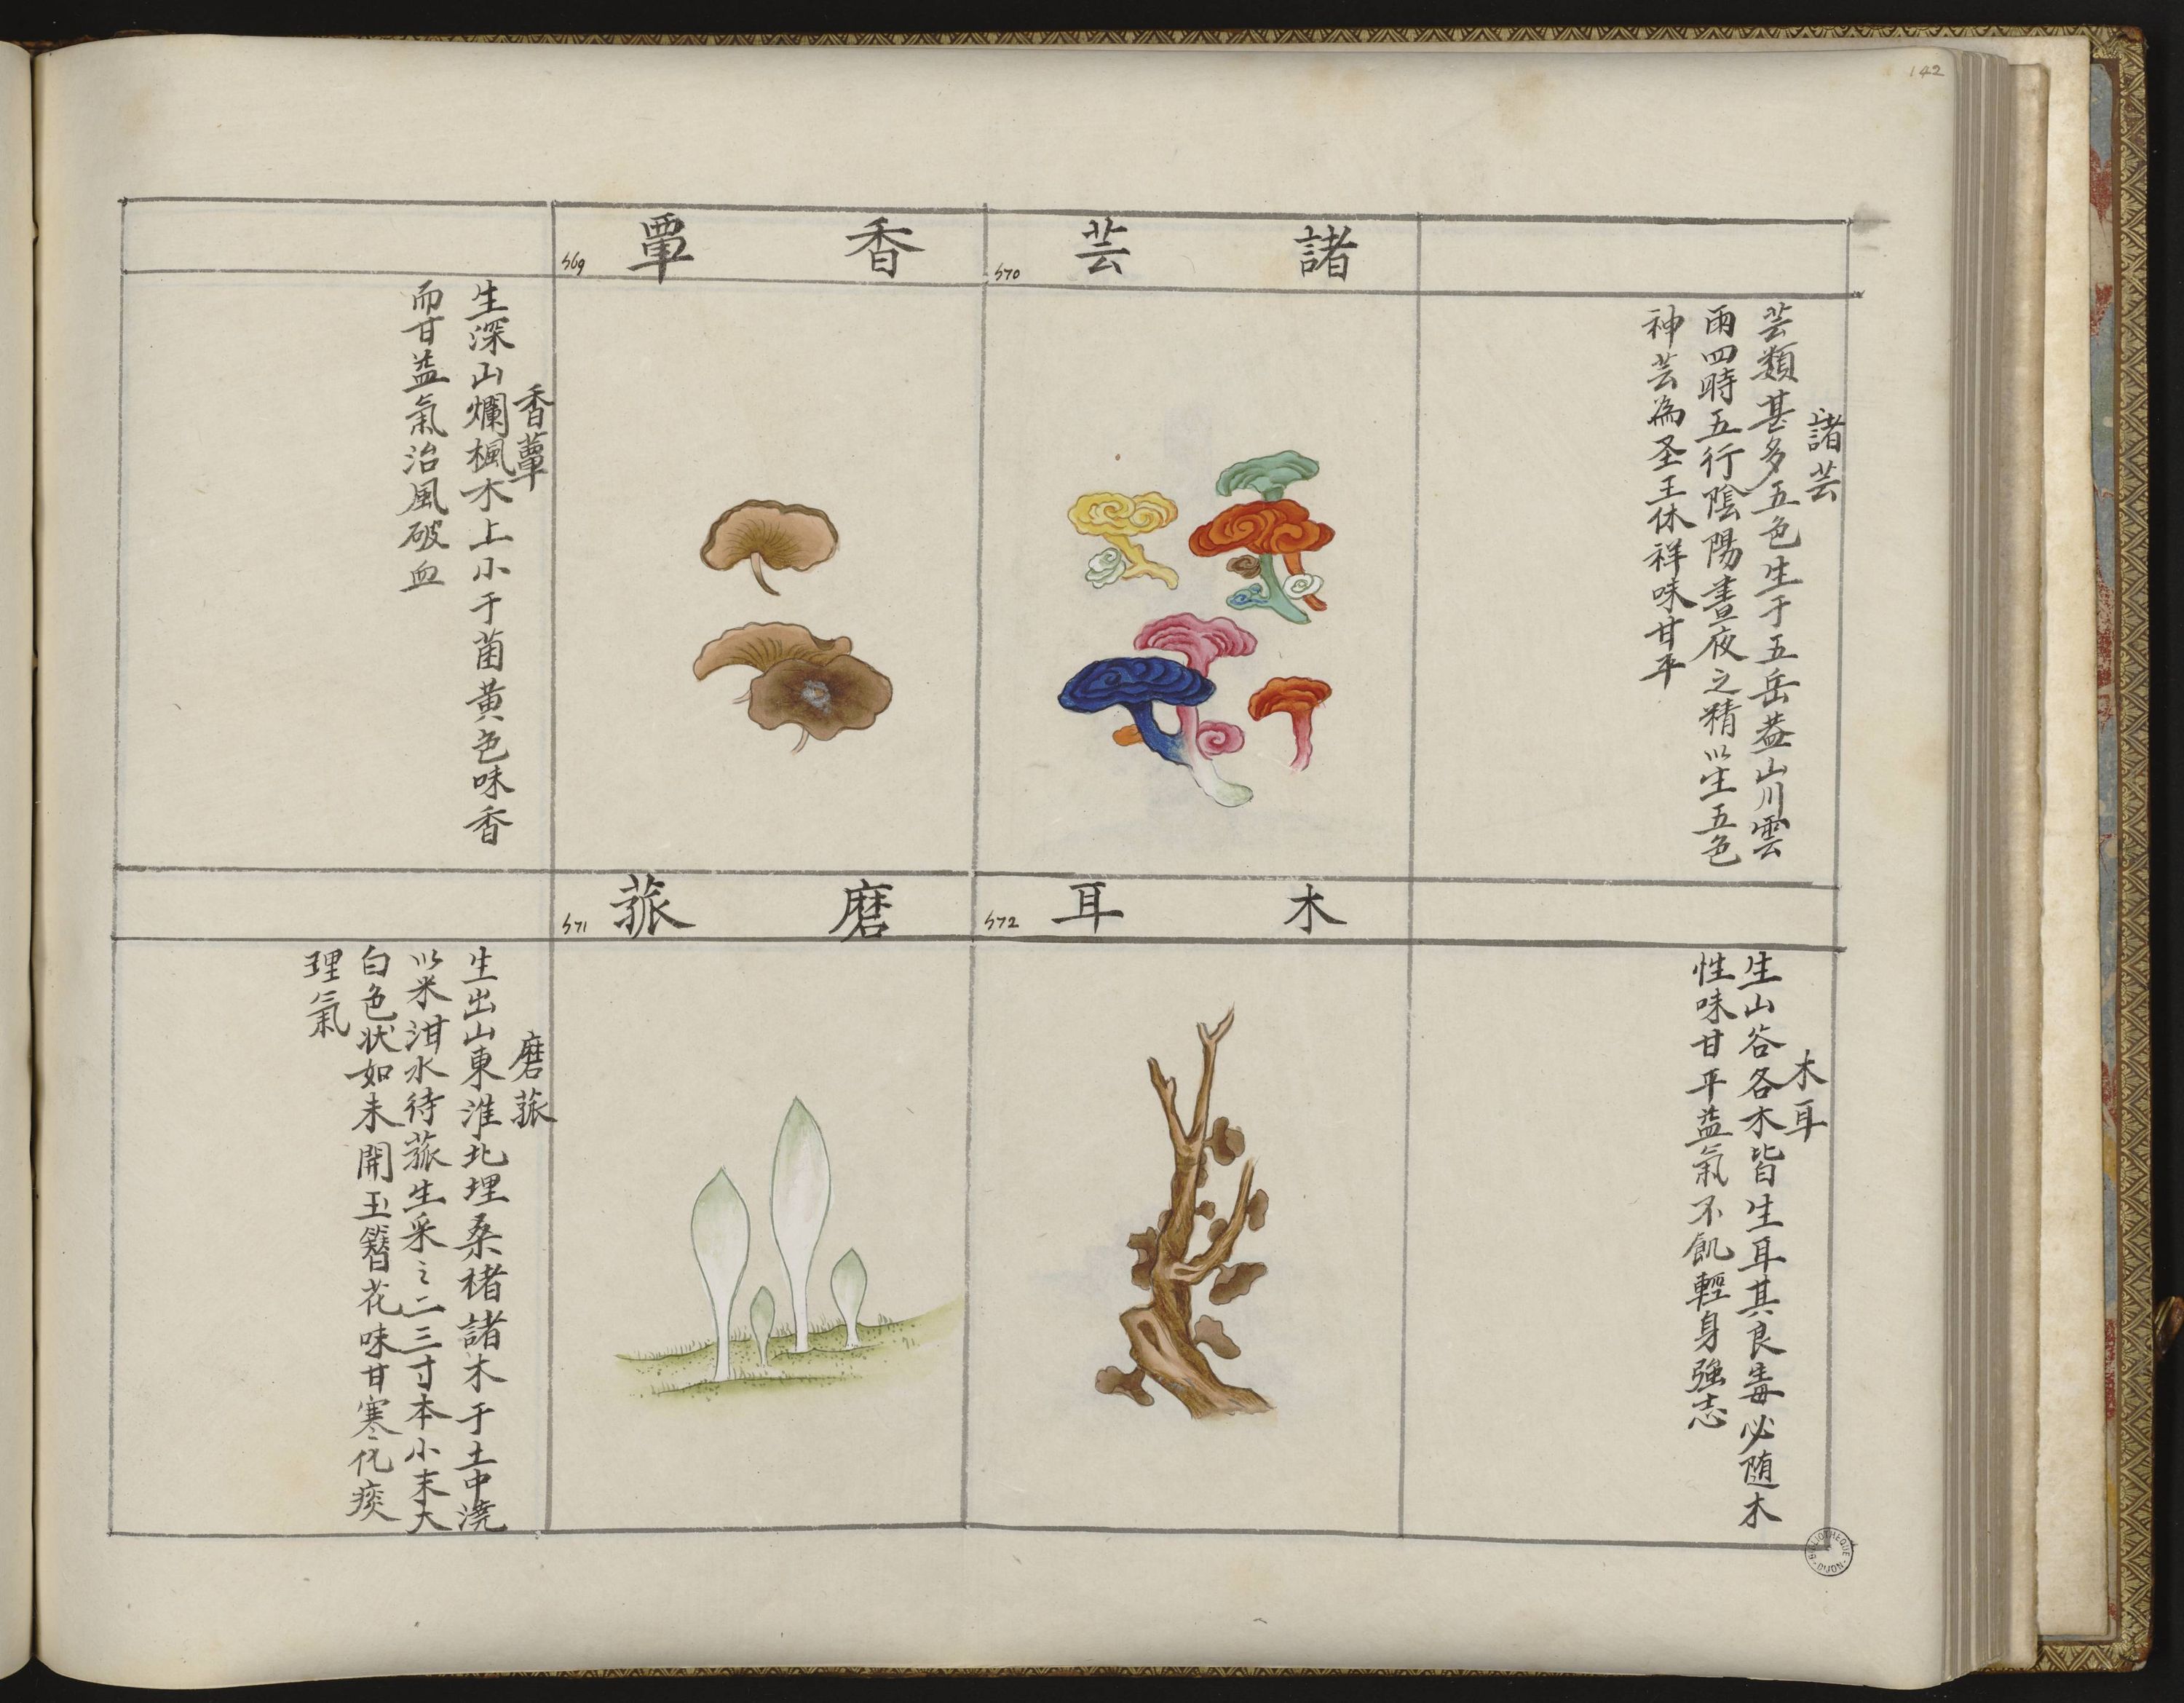 142
諸芸
570
諸芸
芸類甚多五色生于五岳蓋山川雲
雨四時五行陰陽晝夜之精以生五色
神芸為圣王休祥味甘平
香覃
569
香蕈
生深山爛楓木上小于菌黄色味香
而甘益氣治風破血
木耳
572
木耳
生山谷各木皆生耳其良毒必随木
性味甘平益氣不飢輕身強志
磨菰
571
磨菰
生出山東淮北埋桑楮諸木于土中澆
以米泔水待菰生采之二三寸本小末大
白色状如未開玉簪花味甘寒化痰
理氣
BIBLIOTHEQUE DIJON